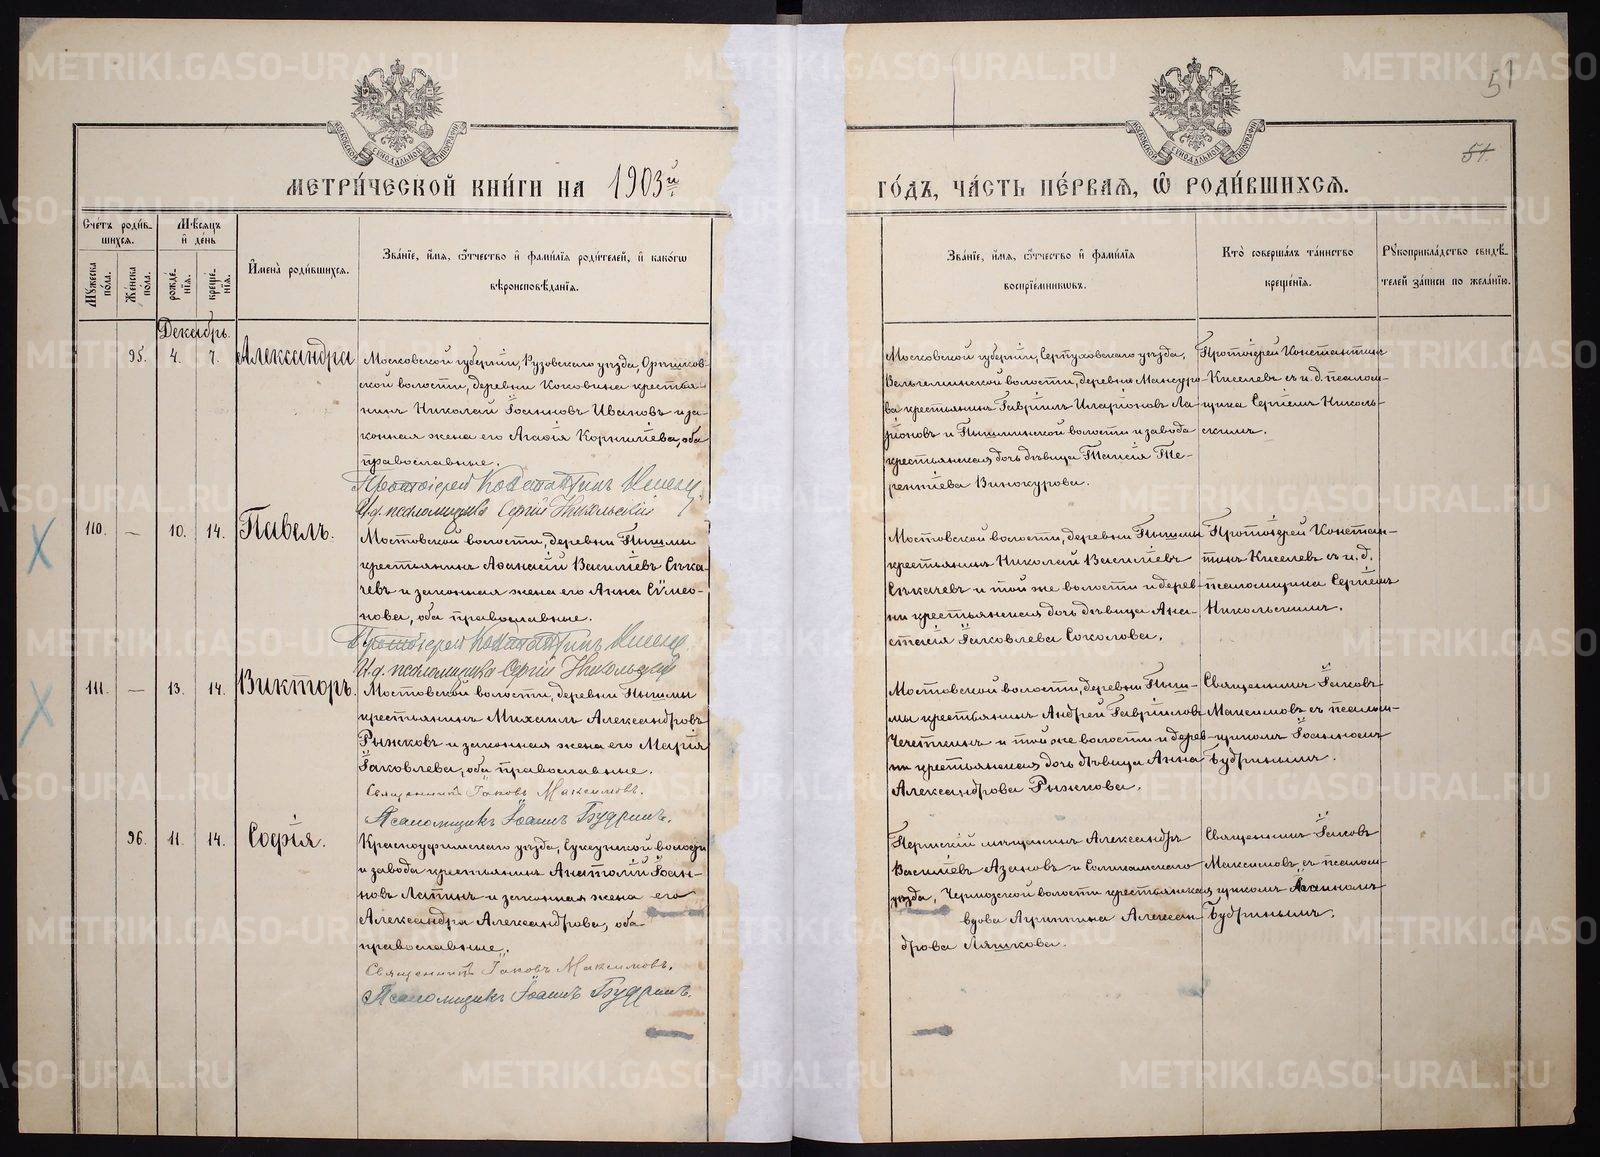 51
51.
МОСКОВСКОЙ СУНОДАЛЬНОЙ ТИПОГРАФІИ
МОСКОВСКОЙ СУНОДАЛЬНОЙ ТИПОГРАФІИ
МЕТРИ́ЧЕСКОЙ КНИ́ГИ НА 1903й
ГО́ДЪ, ЧА́СТЬ ПЕ́РВАЯ, Ѡ РОДИ́ВШИХСЯ.
Сче́тъ роди́в-
шихся.
Мѣ́сяцъ
и҆ де́нь
Му́жеска по́ла.
Же́нска по́ла.
рожде́нїя.
креще́нїя.
И҆мена̀ роди́вшихся.
Зва́нїе, и҆́мя, ѻ҆́тчество и҆ фами́лїа роди́телей, и҆ како́гѡ
вѣроисповѣ́данїя.
Зва́нїе, и҆́мя, ѻ҆́тчество и҆ фами́лїа
воспрїе́мниковъ.
Кто̀ соверша́лъ та́инство
креще́нїя.
Рꙋкоприкла́дство свидѣ́-
телей за́писи по жела́нїю.
Декабрь.
95. 4. 7. Александра
Московской губерніи, Рузовскаго уѣзда, Орѣшков-
ской волости, деревни Коковина крестья-
нинъ Николай Іоанновъ Ивановъ и за-
конная жена его Агафія Корниліева, оба
православные.
Протоіерей Константинъ Киселев.
И.д. псаломщика Сергій Никольскій
Московской губерніи, Серпуховскаго уѣзда,
Вельяминской волости, деревни Мансуро-
ва крестьянинъ Гавріилъ Иларіоновъ Ла-
ріоновъ и Пышминской волости и завода
крестьянская дочь дѣвица Таисія Те-
рентіева Винокурова.
Протоіерей Константинъ
Киселевъ съ и. д. псалом-
щика Сергіемъ Николь-
скимъ.
110. — 10. 14. Павелъ.
Мостовской волости, деревни Пышмы
крестьянинъ Аѳанасій Василіевъ Сѣка-
чевъ и законная жена его Анна Сѵмео-
нова, оба православные.
Протоіерей Константинъ Киселев.
И.д. псаломщика Сергій Никольскій
Мостовской волости, деревни Пышмы
крестьянинъ Николай Василіевъ
Сѣкачевъ и той же волости и дерев-
ни крестьянская дочь дѣвица Ана-
стасія Іаковлева Соколова.
Протоіерей Констан-
тинъ Киселевъ съ и. д.
псаломщика Сергіемъ
Никольскимъ.
111. — 13. 14. Викторъ.
Мостовской волости, деревни Пышмы
крестьянинъ Михаилъ Александровъ
Рыжковъ и законная жена его Марія
Іаковлева, оба православные.
Священникъ Іаковъ Максимовъ.
Псаломщикъ Іоаннъ Будринъ.
Мостовской волости, деревни Пыш-
мы крестьянинъ Андрей Гавріиловъ
Чечеткинъ и той же волости и дерев-
ни крестьянская дочь дѣвица Анна
Александрова Рыжкова.
Священникъ Іаковъ
Максимовъ съ псалом-
щикомъ Іоанномъ
Будринымъ.
96. 11. 14. Софія.
Красноуфимскаго уѣзда, Суксунской волости
и завода крестьянинъ Анатолій Іоан-
новъ Лапинъ и законная жена его
Александра Александрова, оба
православные.
Священникъ Іаковъ Максимовъ.
Псаломщикъ Іоаннъ Будринъ.
Пермскій мѣщанинъ Александръ
Василіевъ Азановъ и Соликамскаго
уѣзда, Чермозской волости крестьянская
вдова Агриппина Алексан
дрова Ляшкова.
Священникъ Іаковъ
Максимовъ съ псалом-
щикомъ Іоанномъ
Будринымъ.
METRIKI.GASO-URAL.RU